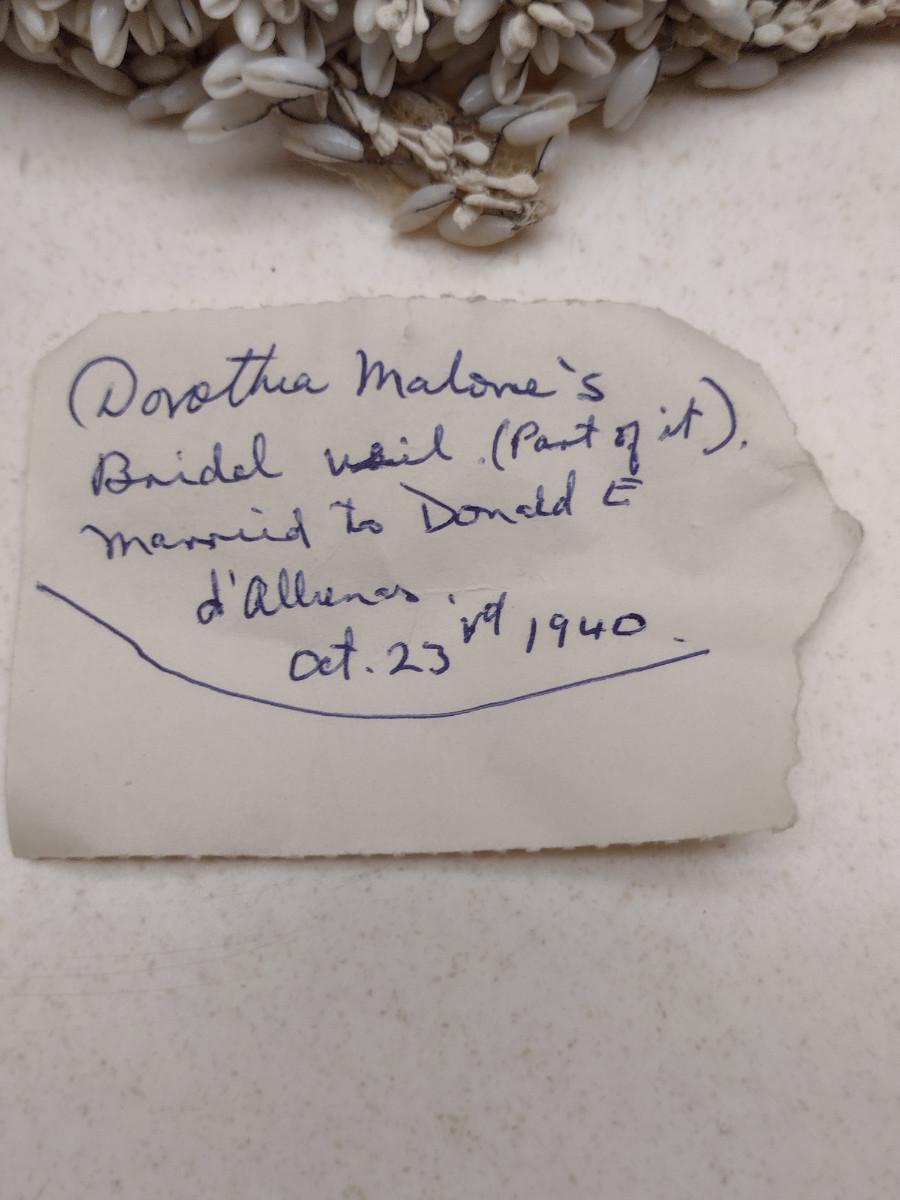 Dorothea Malone's
Bridal veil. (Part of it).
Married to Donald E
d'Allenas.
Oct. 23rd 1940.